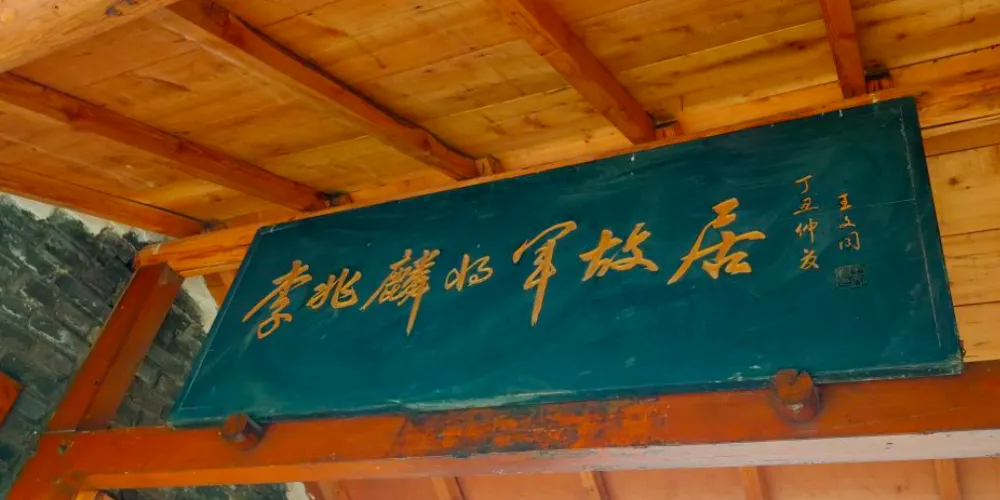 李兆麟将军故居
丁丑仲夏
王文同